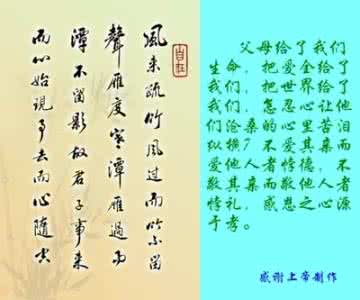 風來疏竹風過而竹不留
聲雁度寒潭雁過而
潭不留影故君子事來
而心始現事去而心隨空
父母给了我们
生命，把爱全给了
我们，把世界给了
我们，怎忍心让他
们沧桑的心里苦泪
纵横？不爱其亲而
爱他人者悖德，不
敬其亲而敬他人者
悖礼，感恩之心源
于孝。
感谢上帝制作